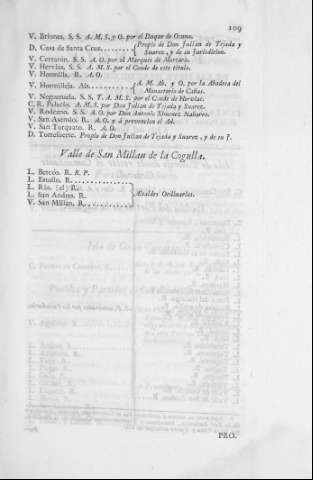 109
V. Briones. S. S. A. M. S. y O. por el Duque de Osuna.
D. Casa de Santa Cruz. {Propio de Don Julian de Tejada y Suarez, y de su Jurisdicion.
V. Cerratón. S. S. A. O. por el Marques de Mortara.
V. Hervías. S. S. A. M. S. por el Conde de este título.
V. Hormilla. R. A. O.
V. Hormilleja. Ab. {A. M. Ab. y O. por la Abadesa del Monasterio de Cañas.
V. Negueruela. S. S. T. A. M. S. por el Conde de Hervías.
C. R. Palacio. A. M. S. por Don Julian de Tejada y Suarez.
V. Rodezno. S. S. A. O. por Don Antonio Ximenez Nabarro.
V. San Asensio. R. A. O. y á prevencion el Ad.
V. San Torquato. R. A. O.
D. Torrefuerte. Propio de Don Julian de Tejada y Suarez, y de su J.
Valle de San Millan de la Cogulla.
L. Berceo. R. R. P.
L. Estollo. R.
L. Río. (el) R.
L. San Andres. R.
V. San Millan. R.
Alcaldes Ordinarios.
PRO.